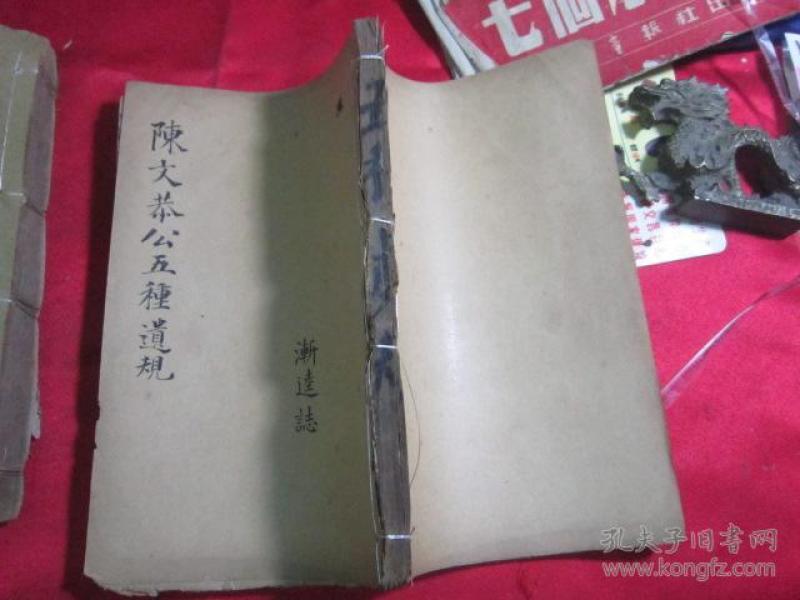 陳文恭公五種遺規
漸逵誌
五種
七個
報社出
孔夫子旧书网
www.kongfz.com